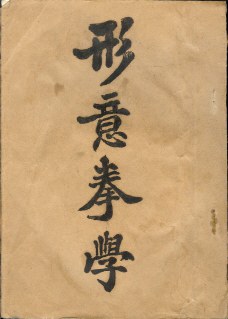 形意拳學